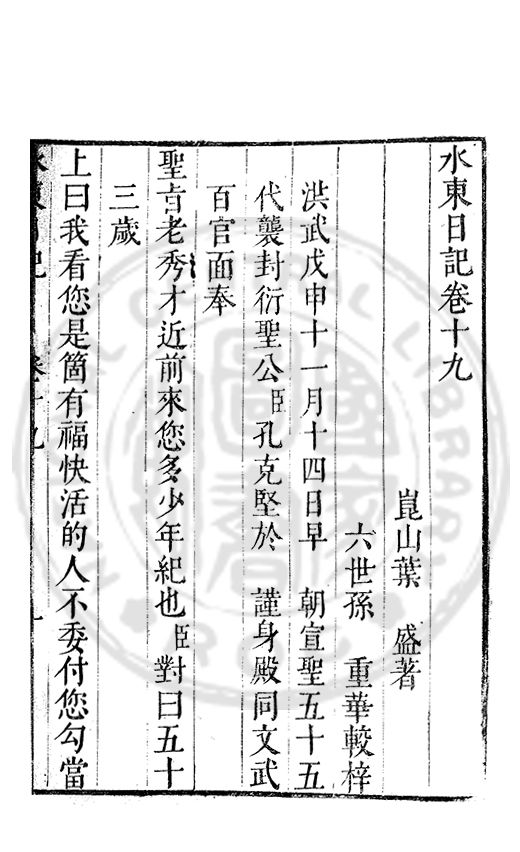 水東日記卷十九
崑山葉　盛著
六世孫　重華較梓
洪武戊申十一月十四日早　朝宣聖五十五
代襲封衍聖公臣孔克堅於　謹身殿同文武
百官面奉
聖旨老秀才近前來您多少年紀也臣對曰五十
三歲
上曰我看您是箇有福快活的人不委付您勾當